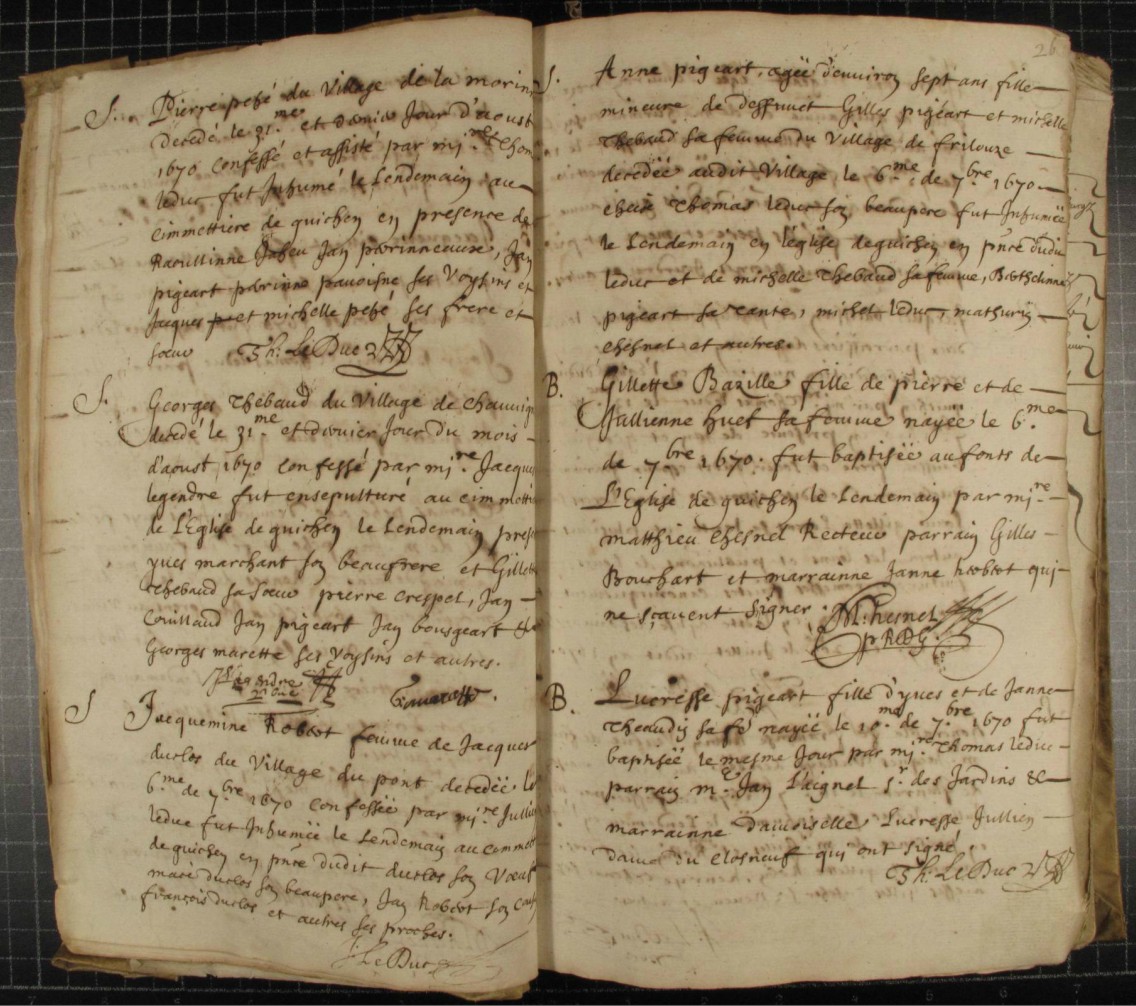 S. Pierre pefé du Village de la morin
decedé le 31.me et dernier Jour d'aoust
1670 confessé et assisté par mi.re Thom
leduc fut Inhumé le Lendemain au
cimmettiere de guichen en presence de
Raoullinne Jan perinne, Jan
pigeart perinne ses Voysins et
Jacques et michelle pefé ses frere et
soeur Th: Le Duc
S. Georges Thebaud du Village de chauvig
decedé le 31.me et dernier Jour du mois
d'aoust 1670 confessé par mi.re Jacques
legendre fut ensepulturé au cimmettie
de L'Eglise de guichen le Lendemain prese
yves marchant son beaufrere et Gillett
Thebaud sa soeur pierre crespel, Jan
Couillaud Jan pigeart Jan bousgeart &
Georges marette ses Voysins et autres.
S Jacquemine Robert femme de Jacques
duclos du Village du pont decedée le
6.me de 7.bre 1670 confessée par mi.re Jullie
leduc fut Inhumée le Lendemain au cimmet
de guichen en pnce dudit duclos son
duclos son beaupere, Jan Robert son
françois duclos et autres ses proches.
J: Le Duc
26
S. Anne pigeart, agée d'environ sept ans fille
mineure de deffunct Gilles pigeart et michelle
Thebaud sa femme du Village de frilouze
decedée audit Village le 6.me de 7.bre 1670
cheix Thomas leduc son beaupere fut Inhumée
le Lendemain en l'eglise de guichen en pnce dudit
leduc et de michelle Thebaud sa femme, Berthelinne
pigeart sa tante, michel leduc, mathurin
chesnel et autres.
B. Gillette Bazille fille de pierre et de
Jullienne huet sa femme nayée le 6.me
de 7.bre 1670. fut baptisée au fonts de
L'Eglise de guichen le Lendemain par mi.re
matthieu chesnel Recteur parrain Gilles
Bouchart et marrainne Janne herbert qui
ne sçavent signer. M: chesnel
B. Lucresse pigeart fille d'yves et de Janne
Theaudin sa fe nayée le 10.me de 7.bre 1670 fut
baptisée le mesme Jour par mi.re Thomas leduc
parrain m.e Jan L'aignel s.r des Jardins &
marrainne Damoiselle Lucresse Jullien
dame du closneuf qui ont signé,
Th: Le Duc